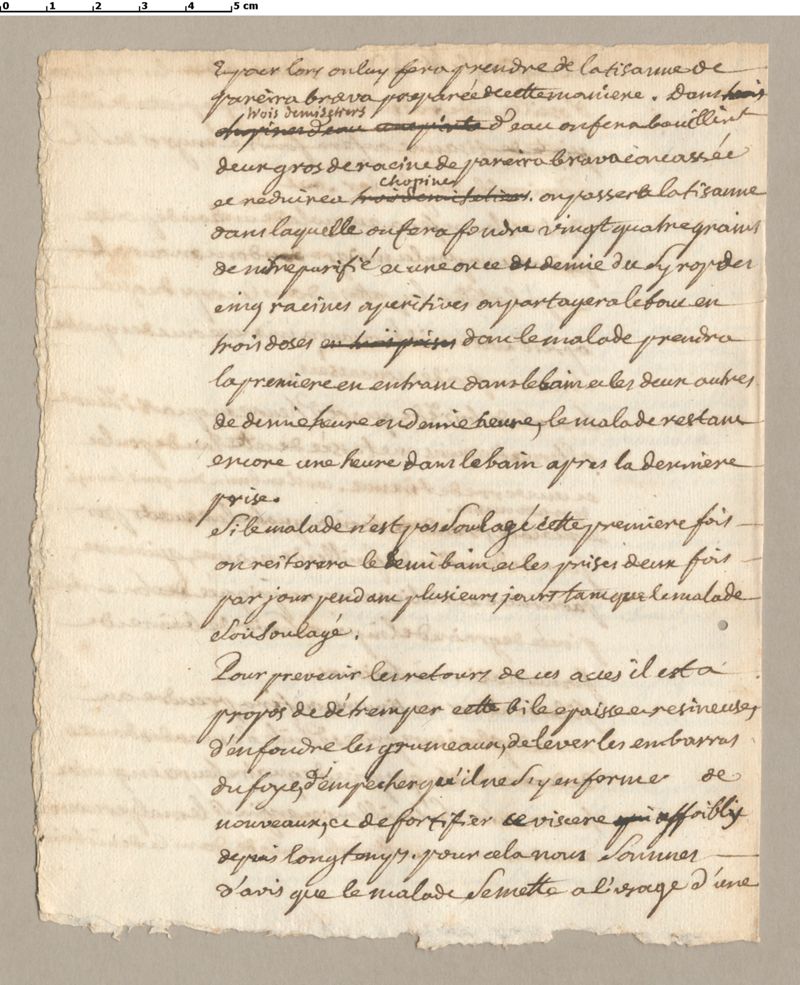 0 1 2 3 4 5 cm
Et pour lors on luy fera prendre de la tisanne de
pareira brava preparée de cette maniere. Dans trois
trois demisetiers
chopines d'eau une pinte d'eau on fera bouillir
deux gros de racine de pareira brava concassée
chopine
et reduire a trois demisetiers. on passera la tisanne
dans laquelle on fera fondre vingt quatre grains
de nitre purifié et une once et demie du syrop des
cinq racines aperitives on partagera le tout en
trois doses en trois prises dont le malade prendra
la premiere en entrant dans le bain et les deux autres
de demie heure en demie heure, le malade restant
encore une heure dans le bain apres la derniere
prise.
Si le malade n'est pas soulagé cette premiere fois
on reiterera le demi bain et les prises deux fois
par jour pendant plusieurs jours tant que le malade
soit soulagé.
Pour prevenir les retours de ces acces il est a
propos de détremper cette bile epaisse et resineuse,
d'en fondre les grumeaux, de lever les embarras
du foye, d'empecher qu'il ne s'y en forme de
nouveaux, et de fortifier ce viscere qui affoibly
depuis longtemps. pour cela nous sommes
d'avis que le malade se mette a l'usage d'une